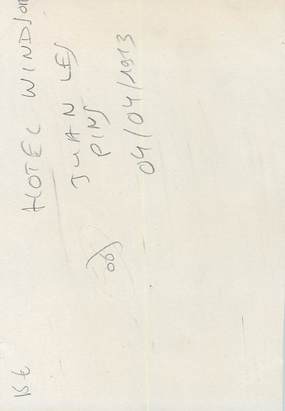 HOTEL WINDSOR
JUAN LES
PINS
04/04/1913